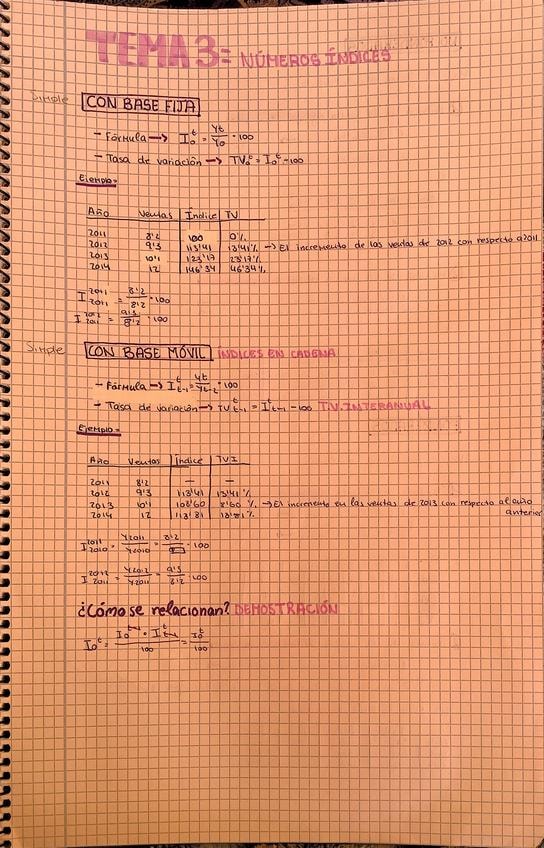 TEMA 3: NÚMEROS ÍNDICES
Simple CON BASE FIJA
- Fórmula → I₀ᵗ = Yt/Y₀ · 100
- Tasa de variación → TV₀ᵗ = I₀ᵗ - 100
Ejemplo:
Año Ventas Índice TV
2011 8'2 100 0%
2012 9'3 113'41 13'41% → El incremento de las ventas de 2012 con respecto a 2011
2013 10'1 123'17 23'17%
2014 12 146'34 46'34%
I 2011/2011 = 8'2/8'2 · 100
I 2012/2011 = 9'3/8'2 · 100
Simple CON BASE MÓVIL ÍNDICES EN CADENA
- Fórmula → I t/t-1 = Yt/Yt-1 · 100
- Tasa de variación → TV t/t-1 = I t/t-1 - 100 T.V. INTERANUAL
Ejemplo:
Año Ventas Índice TVI
2011 8'2 — —
2012 9'3 113'41 13'41%
2013 10'1 108'60 8'60% → El incremento en las ventas de 2013 con respecto al año
anterior
2014 12 118'81 18'81%
I 2011/2010 = Y2011/Y2010 = 8'2/ · 100
I 2012/2011 = Y2012/Y2011 = 9'3/8'2 · 100
¿Cómo se relacionan? DEMOSTRACIÓN
I₀ᵗ = I₀ᵗ⁻¹ · I t/t-1 / 100 = I₀ᵗ/100